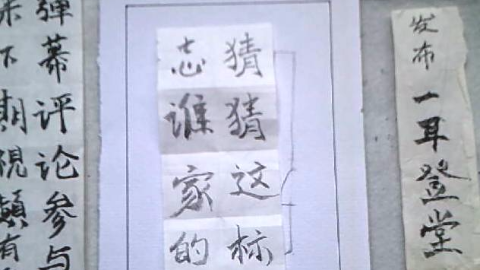 发布一耳登堂
猜猜这标
志谁家的
弹幕评论参与
下期视频有